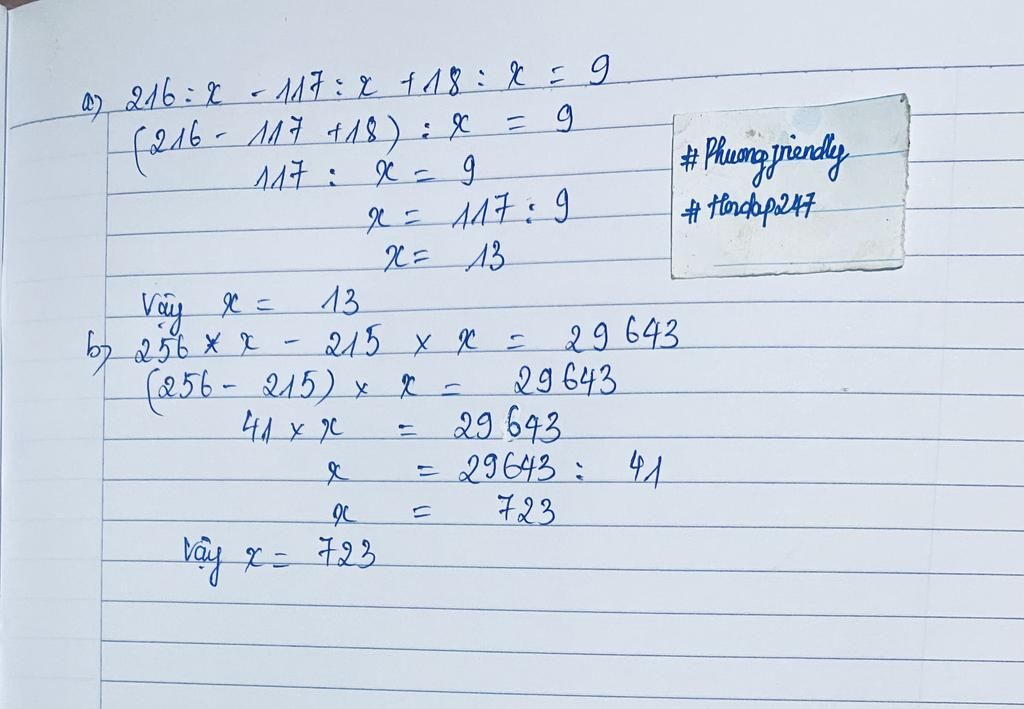 a) 216 : x - 117 : x + 18 : x = 9
(216 - 117 + 18) : x = 9
117 : x = 9
x = 117 : 9
x = 13
Vậy x = 13
b) 256 × x - 215 × x = 29643
(256 - 215) × x = 29643
41 × x = 29643
x = 29643 : 41
x = 723
Vậy x = 723
# Phuongfriendly
# Hoidap247